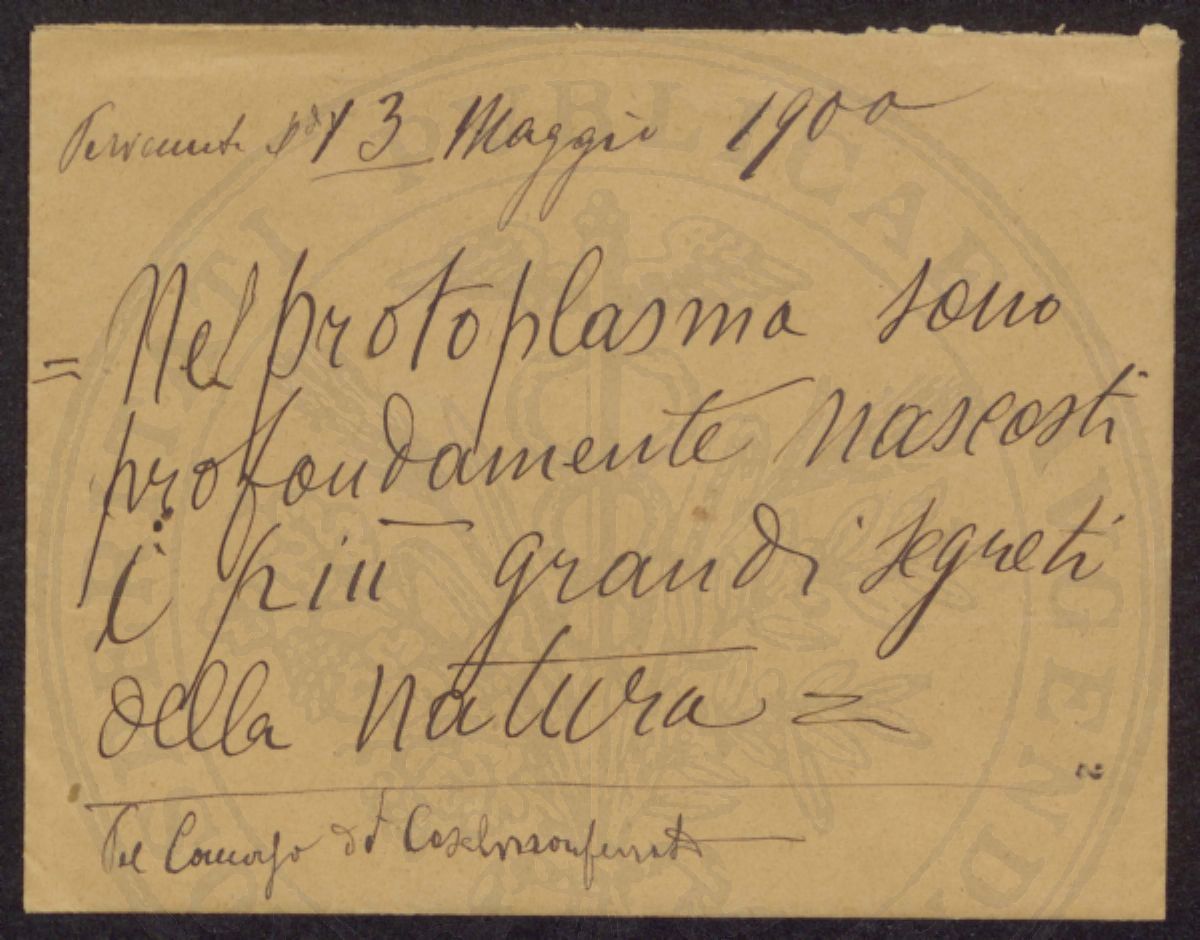 Pervenuto il dì 13 Maggio 1900
= Nel protoplasma sono
profondamente nascosti
i più grandi segreti
della natura =
2
Pel Concorso di Casalmonferrato
PUBLICAE